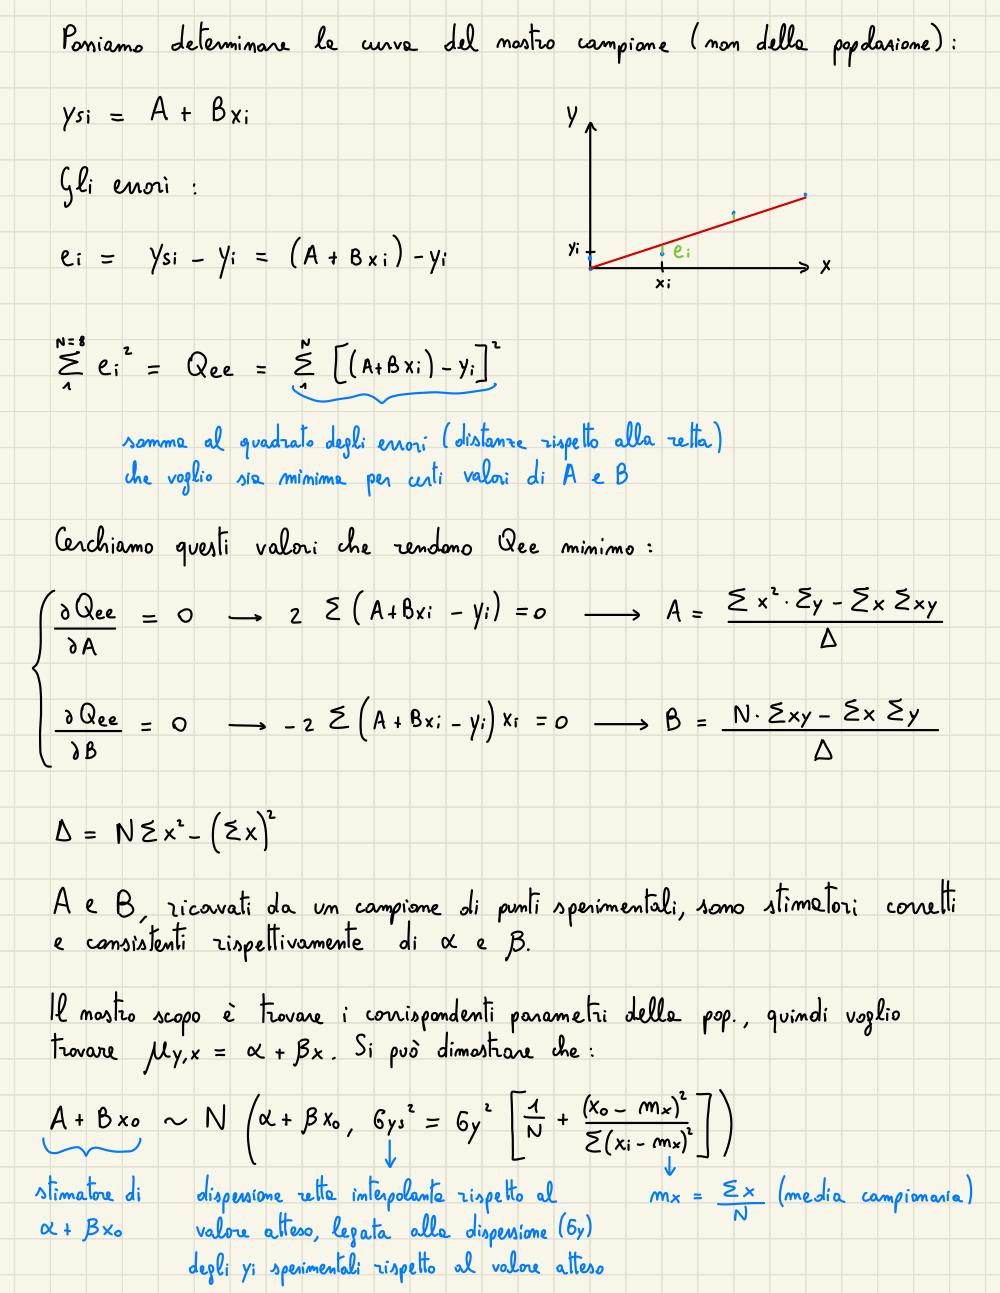 Possiamo determinare la curva del nostro campione (non della popolazione):
ysi = A + Bxi
Gli errori :
ei = ysi - yi = (A + Bxi) - yi
y
yi
ei
xi
x
N=8 Σ 1 ei² = Qee = N Σ 1 [(A+Bxi) - yi]²
somma al quadrato degli errori (distanze rispetto alla retta)
che voglio sia minima per certi valori di A e B
Cerchiamo questi valori che rendono Qee minimo :
∂Qee/∂A = 0 → 2 Σ (A+Bxi - yi) = 0 → A = (Σx² · Σy - Σx Σxy)/Δ
∂Qee/∂B = 0 → -2 Σ (A + Bxi - yi) xi = 0 → B = (N · Σxy - Σx Σy)/Δ
Δ = N Σx² - (Σx)²
A e B, ricavati da un campione di punti sperimentali, sono stimatori corretti
e consistenti rispettivamente di α e β.
Il nostro scopo è trovare i corrispondenti parametri della pop., quindi voglio
trovare μy,x = α + βx. Si può dimostrare che :
A + Bx₀ ~ N (α + βx₀, σys² = σy² [1/N + (x₀ - mx)²/Σ(xi - mx)²])
stimatore di
α + βx₀
dispersione retta interpolante rispetto al
valore atteso, legata alla dispersione (σy)
degli yi sperimentali rispetto al valore atteso
mx = Σx/N (media campionaria)